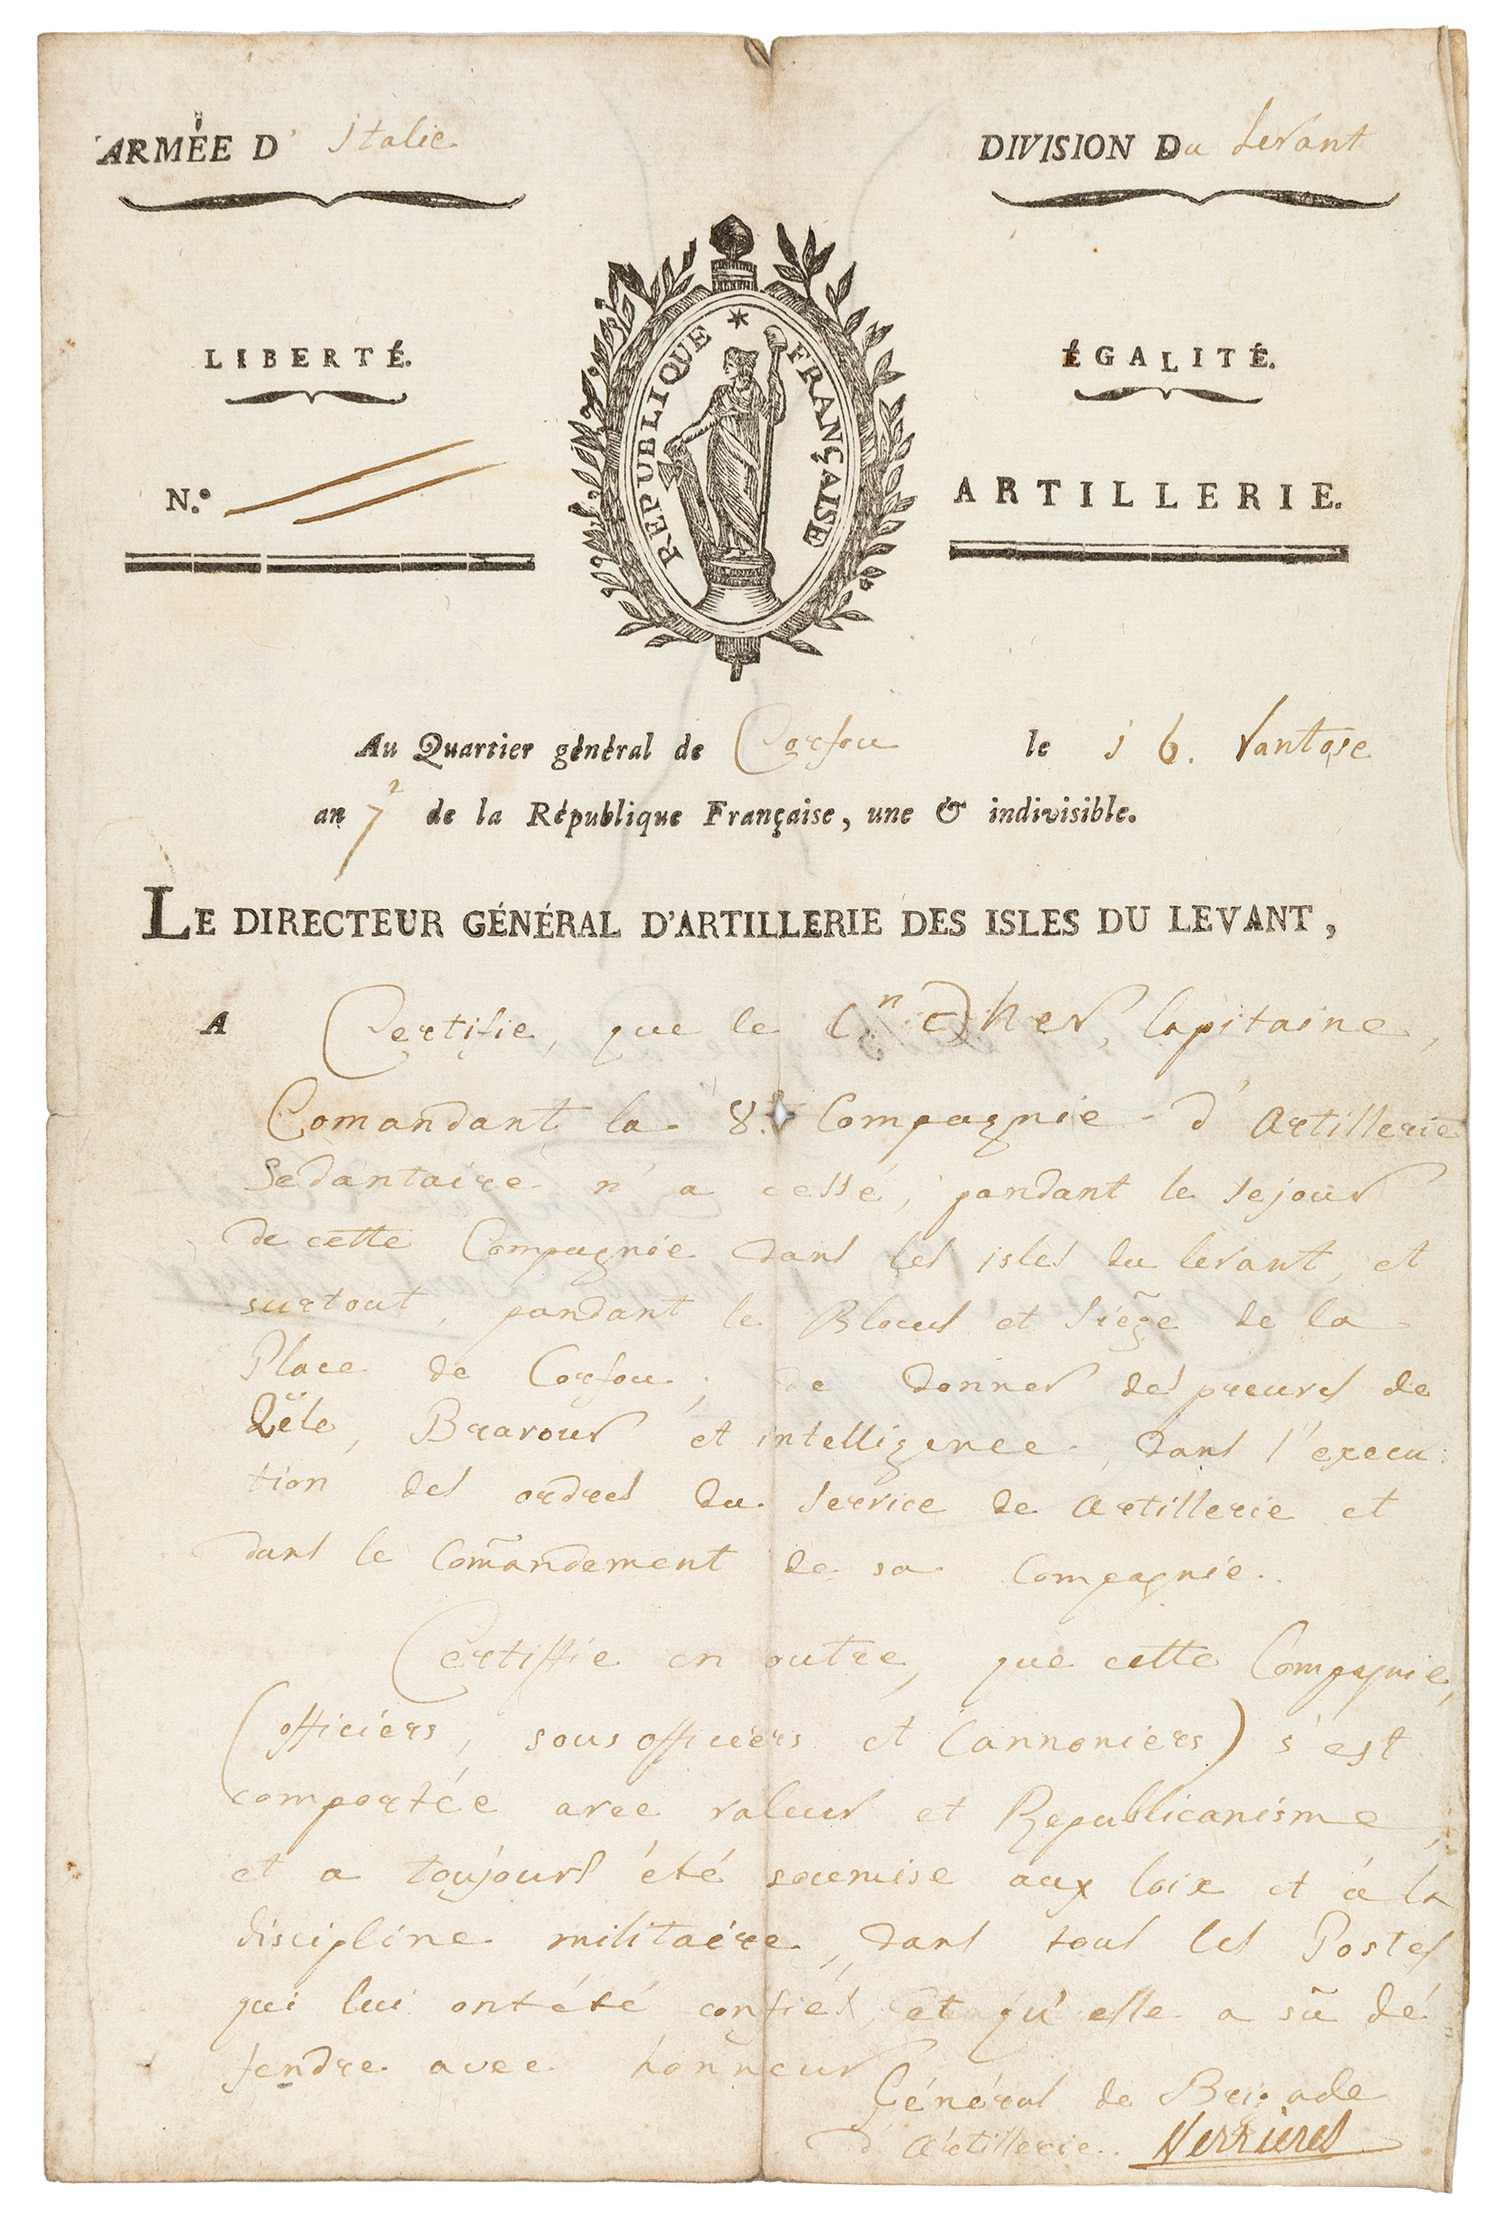 ARMÉE D' italie.
DIVISION Du Levant
LIBERTÉ.
ÉGALITÉ.
REPUBLIQUE FRANÇAISE
N.º
ARTILLERIE.
Au Quartier général de Corfou le 16. Vantose
an 7 de la République Française, une & indivisible.
LE DIRECTEUR GÉNÉRAL D'ARTILLERIE DES ISLES DU LEVANT,
A Certifie, que le C.n Dher, Capitaine,
Comandant la 8.e Compagnie d'Artillerie
Sedantaire n'a cessé, pandant le sejour
de cette Compagnie dans les isles du levant, et
surtout, pandant le Blocus et Siége de la
Place de Corfou, de donner des preuves de
Zèle, Bravour et intelligence, dans l'execu
tion des ordres du Service de Artillerie et
dans le Comandement de sa Compagnie.
Certiffie en outre, que cette Compagnie,
(officiers, sous officiers et Cannoniers) s'est
comportée avec valeur et Republicanisme,
et a toujours été soumise aux loix et à la
discipline militaire, dans tous les Postes
qui lui ont été confiés, et qu'elle a sû dé
fendre avec honneur
Général de Brigade
d'Artillerie. Verrières